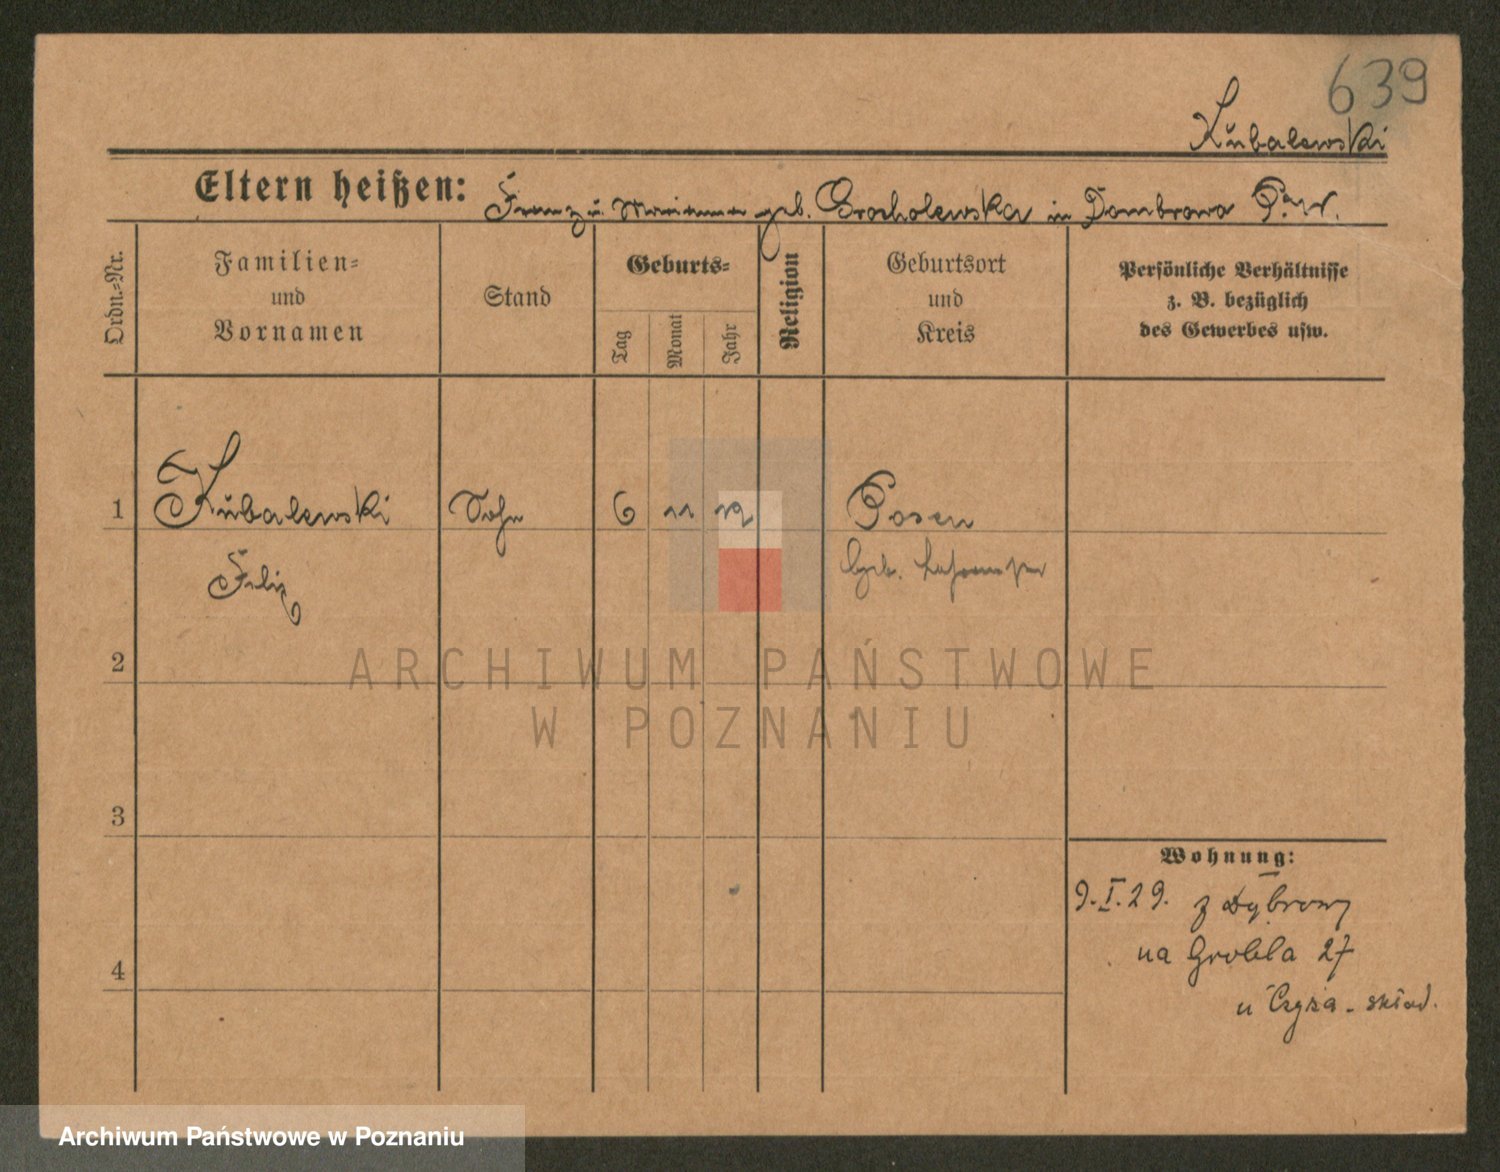 639
Kubalewski
Eltern heißen: Franz u. Marianna geb. Grocholewska in Dombrowo P. W.
Ordn.=Nr.
Familien=
und
Vornamen
Stand
Geburts=
Tag
Monat
Jahr
Religion
Geburtsort
und
Kreis
Persönliche Verhältnisse
z. B. bezüglich
des Gewerbes usw.
1 Kubalewski Sohn 6 11 12 Posen
Felix
2
ARCHIWUM PAŃSTWOWE
W POZNANIU
3
Wohnung:
9.I.29. z Dąbrowy
na Grobla 27
4
u Czysa - skład.
Archiwum Państwowe w Poznaniu